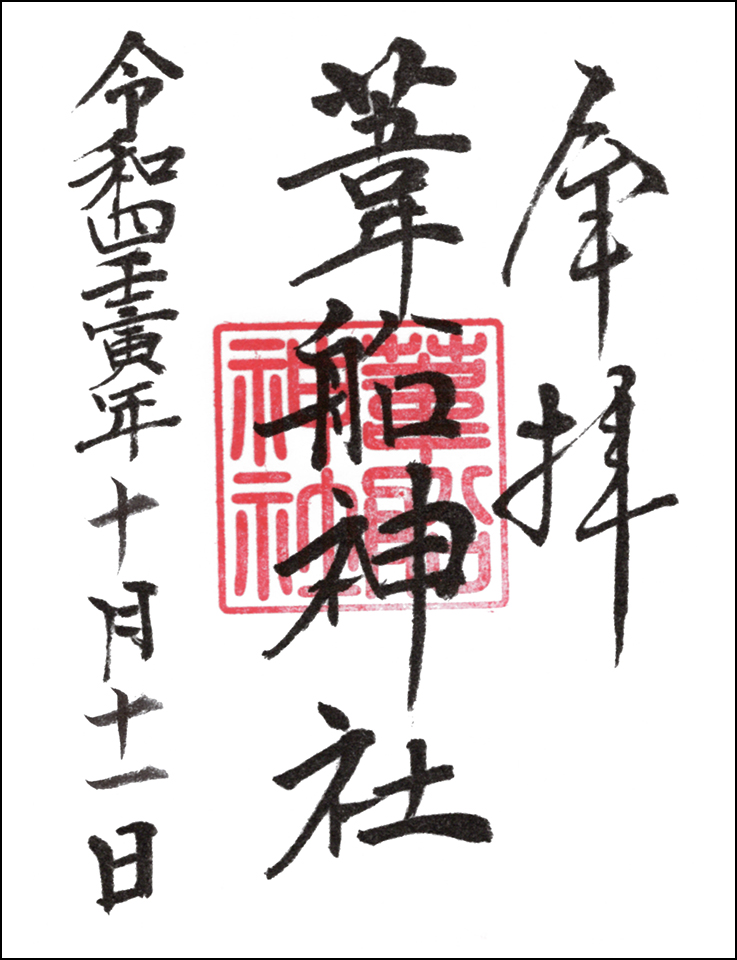 奉拝
葦船神社
葦船神社
令和四壬寅年十月十一日